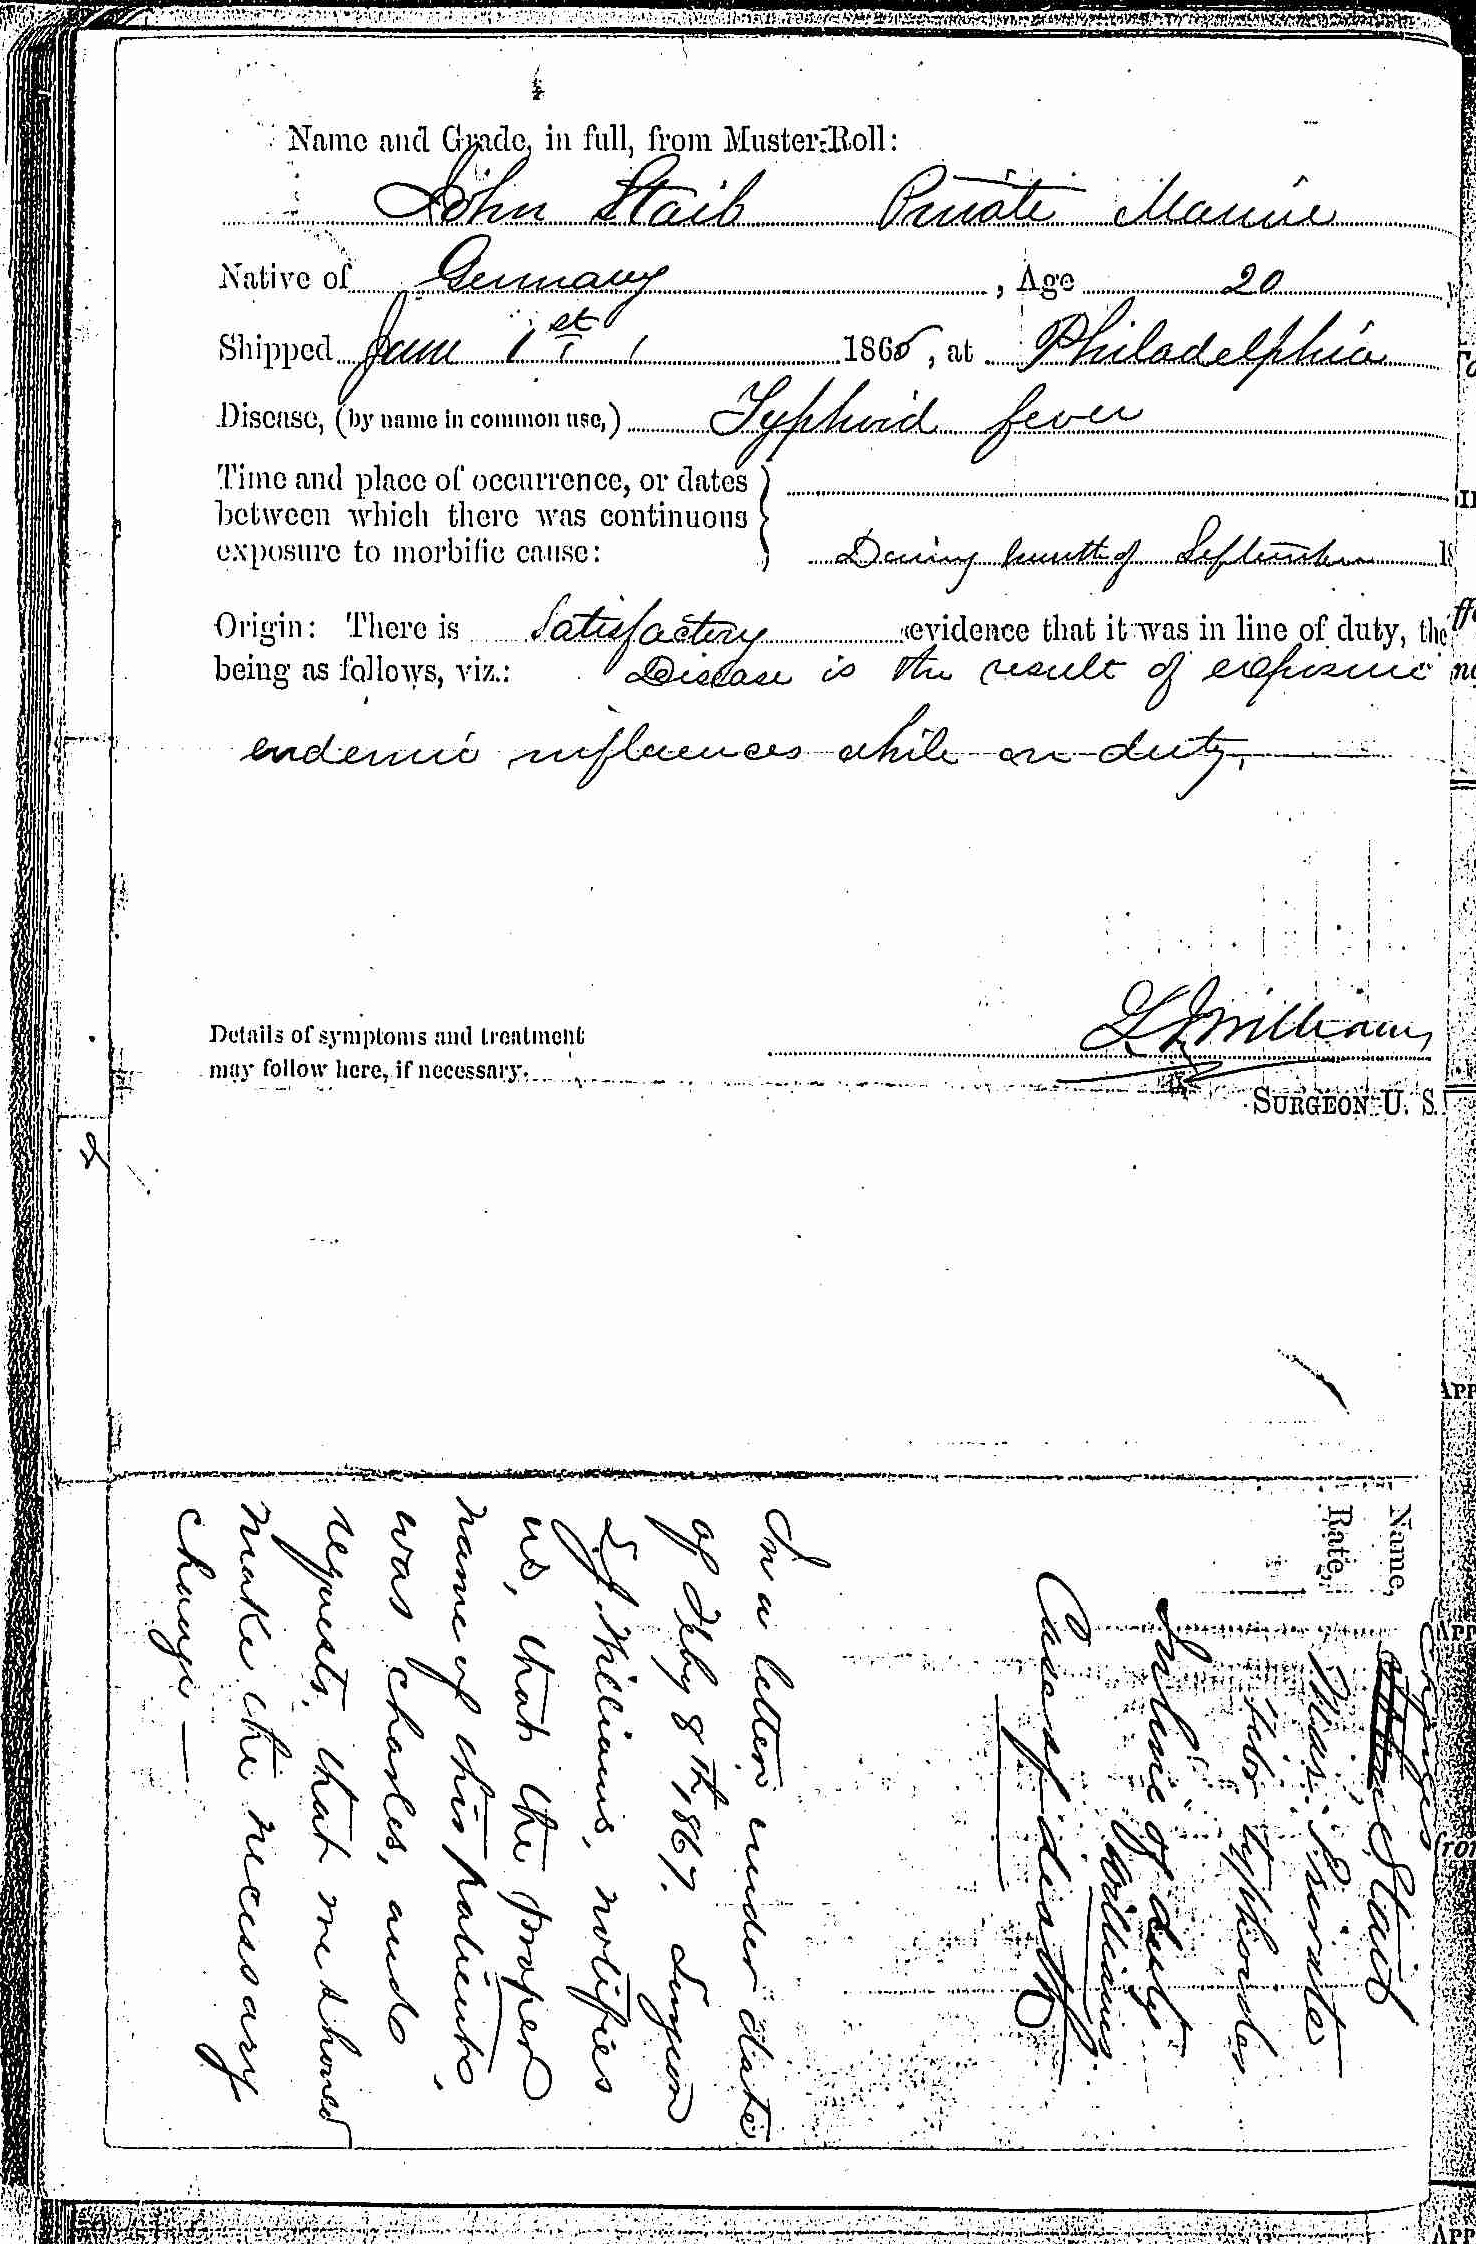 Name and Grade, in full, from Muster-Roll:
John Staib Private Marine
Native of Germany, Age 20
Shipped June 1st, 1865, at Philadelphia
Disease, (by name in common use,) Typhoid fever
Time and place of occurrence, or dates
between which there was continuous
exposure to morbific cause: During month of September 18
Origin: There is Satisfactory evidence that it was in line of duty, the
being as follows, viz.: Disease is the result of exposure
endemic influences while on duty,
L J Williams
Details of symptoms and treatment
may follow here, if necessary.
SURGEON U. S.
Name, Charles Staib
Rate, Mar. Private
Febr typhoides
In line of duty
Williams
Case of death
In a letter under date
of Feby 8th 1867. Surgeon
L J. Williams, notifies
us, that the proper
name of this patient,
was Charles, and
requests that we should
make the necessary
change —